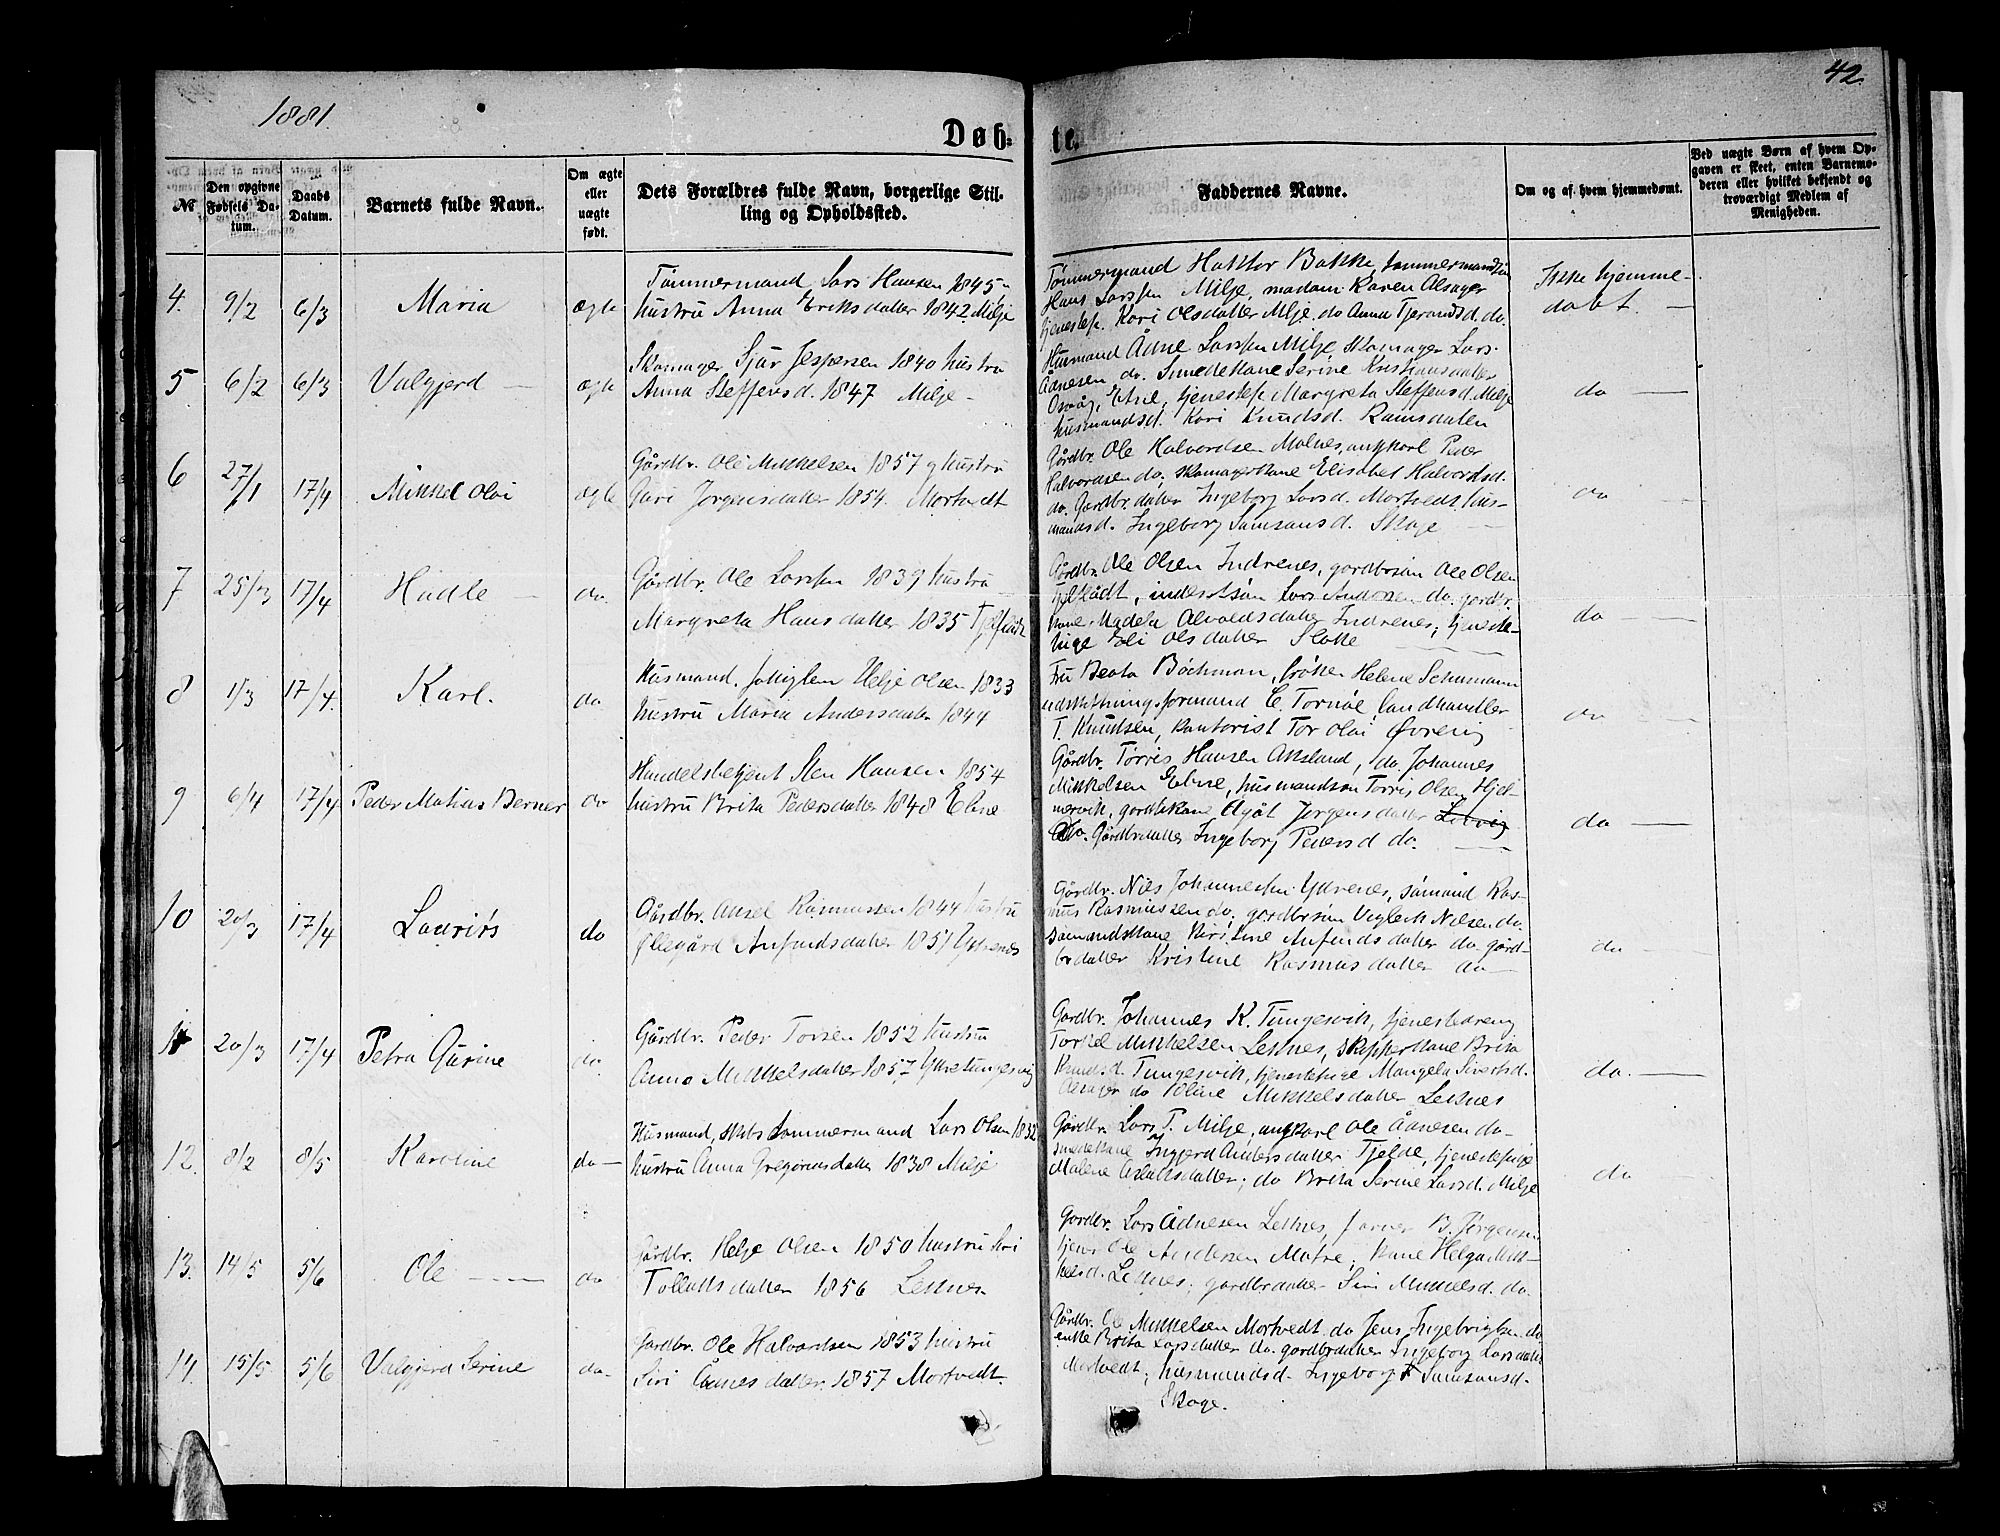 1881.
42.
Døb-
te.
№
Den opgivne Fødsels Da-
tum.
Daabs Datum.
Barnets fulde Navn.
Om ægte eller uægte født.
Dets Forældres fulde Navn, borgerlige Stil-
ling og Opholdssted.
Faddernes Navne.
Om og af hvem hjemmedømt.
Ved uægte Børn af hvem Op-
gaven er skeet, enten Barnemo-
deren eller hvilket bekjendt og
troværdigt Medlem af
Menigheden.
4. 9/2 6/3 Maria ægte
Tømmermand Lars Hansen 1845
hustru Anna Eriksdatter 1842. Milje
Tømmermand Haktor Bakke,
Hans Larssen Milje, madam Karen Alsager
Kari Olsdatter Milje, do Anna Tjerandsd. do.
Ikke hjemme-
døbt. —
5 6/2 6/3 Valgjerd — ægte
Skomager Sjur Jespersen 1840 hustru
Anna Steffensd. 1847 Milje —
Husmand Ådne Larssen Milje, skomager Lars
Ådnesen do. Smedekane Serine Kristiansdatter
Osvåg, Etne, Margreta Steffensd. Milje
husmandsd. Kari Knudsd. Ramsdalen
do —
6 27/1 17/4 Mikkel Olai ægte
Gårdbr. Ole Mikkelsen 1857 og hustru
Guri Jørgensdatter 1854. Mortvedt
Gårdbr. Ole Halvordsen Malnes, ungkarl Peder
Halvordsen do. skomagerkane Elisabet Halvordsd.
do. Gardbr.datter Ingeborg Larsd. Mortvedt, hus-
mandsd. Ingeborg Samsonsd. Skage —
do —
7 25/3 17/4 Hadle — do.
Gårdbr. Ole Larssen 1839 hustru
Margreta Hansdatter 1835
Gårdbr. Ole Olsen Indrenes, gardbrsøn Ole Olsen
Lars Andersen do. gardbr.
kane Alvaldsdatter Indrenes, tjeneste-
pige Eli Olsdatter Slotte —
do —
8 1/3 17/4. Karl. do
Husmand. Helje Olsen 1833
hustru Maria Andersdatter 1844
Fru Beata Bøchman, frøken Helene Schumann
C. Tornøe, landhandler
T. Knudsen, kantorist Tor Olai Øvrevig
do —
9 6/4 17/4 Peder Matias Berner do
Handelsbetjent Sten Hansen 1854
hustru Brita Pedersdatter 1848 Etne
Gårdbr. Tørris Hansen Aksland, do. Johannes
Mikkelsen Etne, husmandsøn Torris Olsen Hjel-
mervik, gardbrkane Agåt Jørgensdatter
do. Gårdbrdatter Ingeborg Pedersd do. —
do —
10 20/3 17/4 Lauritz do
Gårdbr. Aksel Rasmussen 1844 hustru
Øllegård Anfindsdatter 1851 Ytrenes
Gårdbr. Niels Johannessen Ytrenes, sømand Ras-
mus Rasmussen do; gardbrsøn Nilsen do.
sømandskane Anfindsdatter do gård-
brdatter Kristine Rasmusdatter do —
do —
11 20/3 17/4 Petra Gurine do.
Gårdbr. Peder Torsen 1852 hustru
Anna Mikkelsdatter 1857 Ytretungesvig
Gardbr. Johannes K. Tungesvik, tjenestedreng
Torkel Mikkelsen Leknes, skipperkane Brita
Knudsd. Tungesvik, tjenestepige Mangela Sivertsd.
Alsager do Oline Mikkelsdatter Leknes
do. —
12. 8/2 8/5 Karoline do —
Husmand, skibstømmermand Lars Olsen 1832
hustru Anna Gregoriusdatter 1838 Milje
Gårdbr. Lars T. Milje, ungkarl Ole Ådnesen do —
smedekane Ingjerd Andersdatter Tjelde, tjenestepige
Malene Aslaksdatter; do Brita Serine Larsd. Milje
do —
13. 14/5 5/6 Ole — do
Gårdbr. Helje Olsen 1850 hustru Siri
Tollaksdatter 1856 Leknes.
Gardbr. Lars Ådnesen Leknes, B. Jørgensen
Ole Andersen Matre, kane Helga Mik-
kelsd. Leknes; gardbrdatter Siri Mikkelsd. do.
14. 15/5. 5/6 Valgjerd Serine do —
Gardbr. Ole Halvordsen 1853 hustru
Siri Ådnesdatter. 1857 Mortvedt.
Gårdbr. Ole Mikkelsen Mortvedt. do Jens Ingebrigtsen do
enke Brita Larsdatter do. gardbrdatter Ingeborg Larsdatter
Mortvedt; husmandsd. Ingeborg Samsonsd.
Skage.